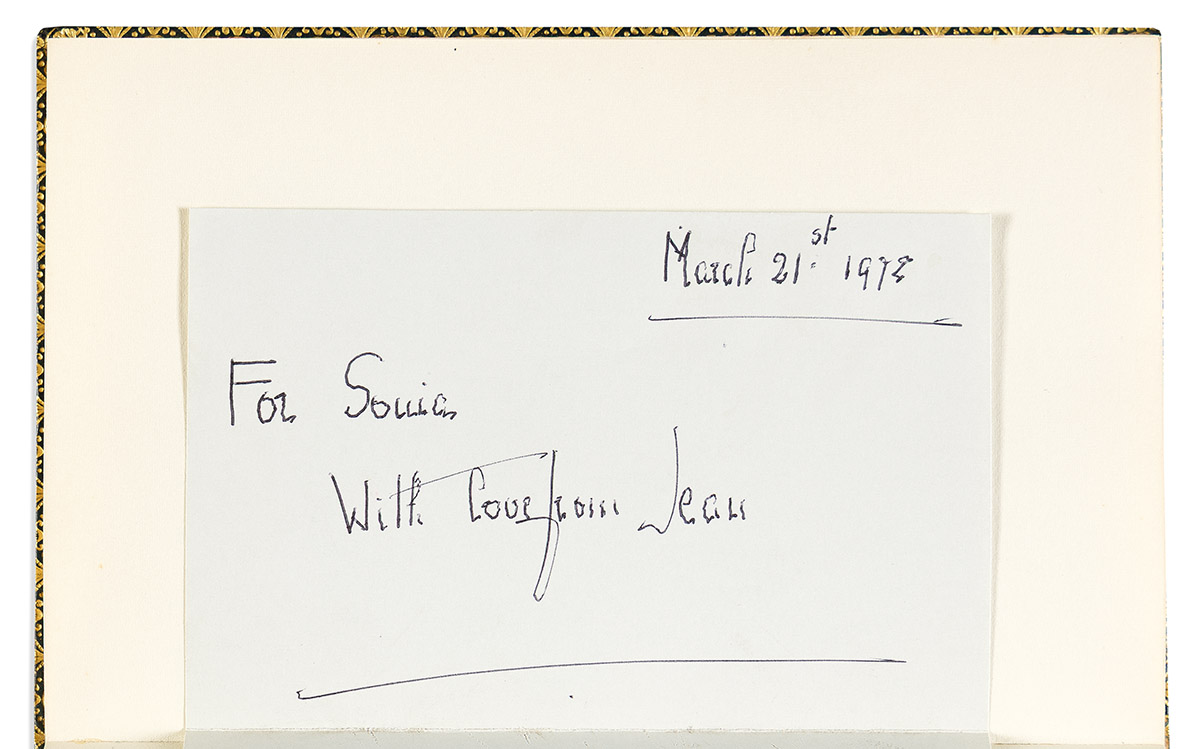 March 21st. 1978
For Sonia
With love from Jean